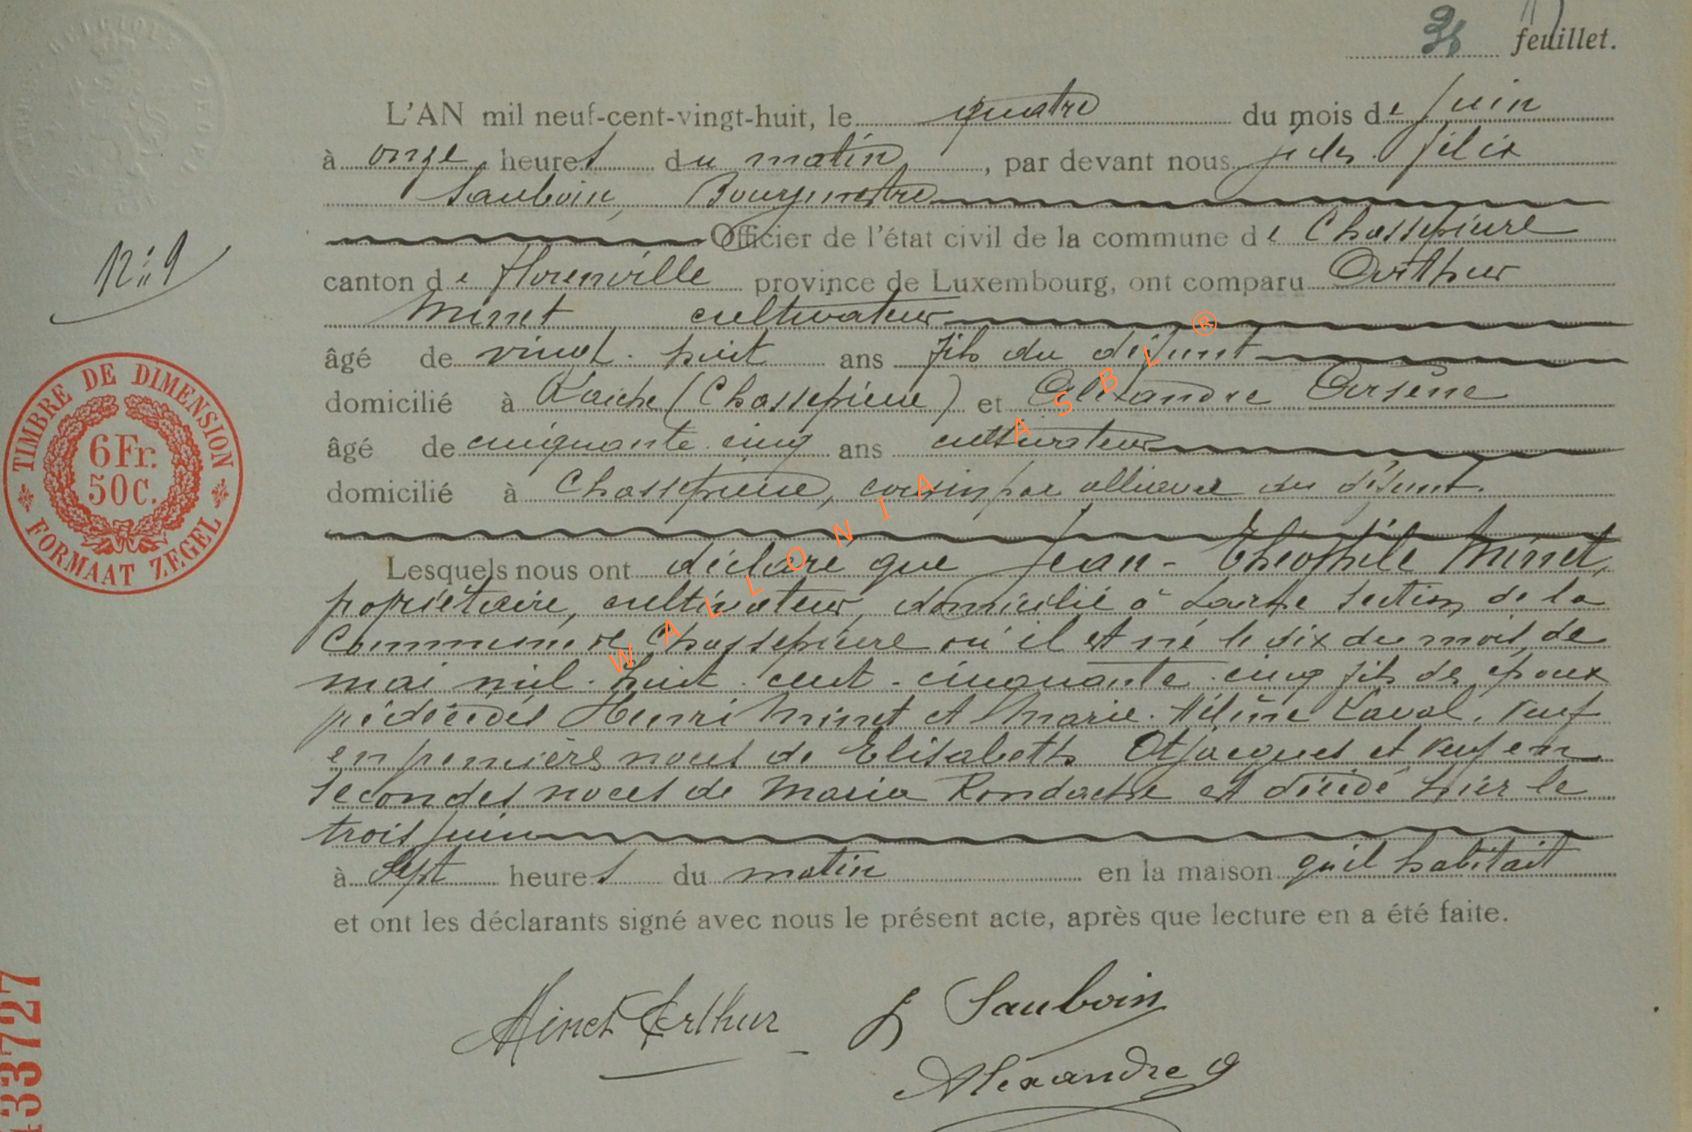 95 feuillet.
L'AN mil neuf-cent-vingt-huit, le quatre du mois de juin
à onze heures du matin, par devant nous Jules Félix
Sauboin, Bourgmestre
Officier de l'état civil de la commune de Chassepierre
N° 9
canton de Florenville province de Luxembourg, ont comparu Arthur
Minet cultivateur
âgé de vingt-huit ans fils du défunt
domicilié à Laiche (Chassepierre) et Alexandre Arsène
âgé de cinquante cinq ans cultivateur
domicilié à Chassepierre, cousin par alliance du défunt.
TIMBRE DE DIMENSION
6Fr.
50C.
FORMAAT ZEGEL
Lesquels nous ont déclaré que Jean-Théophile Minet,
propriétaire, cultivateur, domicilié à Laiche section de la
Commune de Chassepierre où il est né le dix du mois de
mai mil-huit-cent-cinquante-cinq fils des époux
prédécédés Henri Minet et Marie-Hélène Laval, veuf
en premières noces de Elisabeth Otjacques et veuf en
secondes noces de Maria Rondache est décédé hier le
trois juin
à sept heures du matin en la maison qu'il habitait
et ont les déclarants signé avec nous le présent acte, après que lecture en a été faite.
Minet Arthur
J Sauboin
Alexandre a
33727
WALLONIA ASBL ®